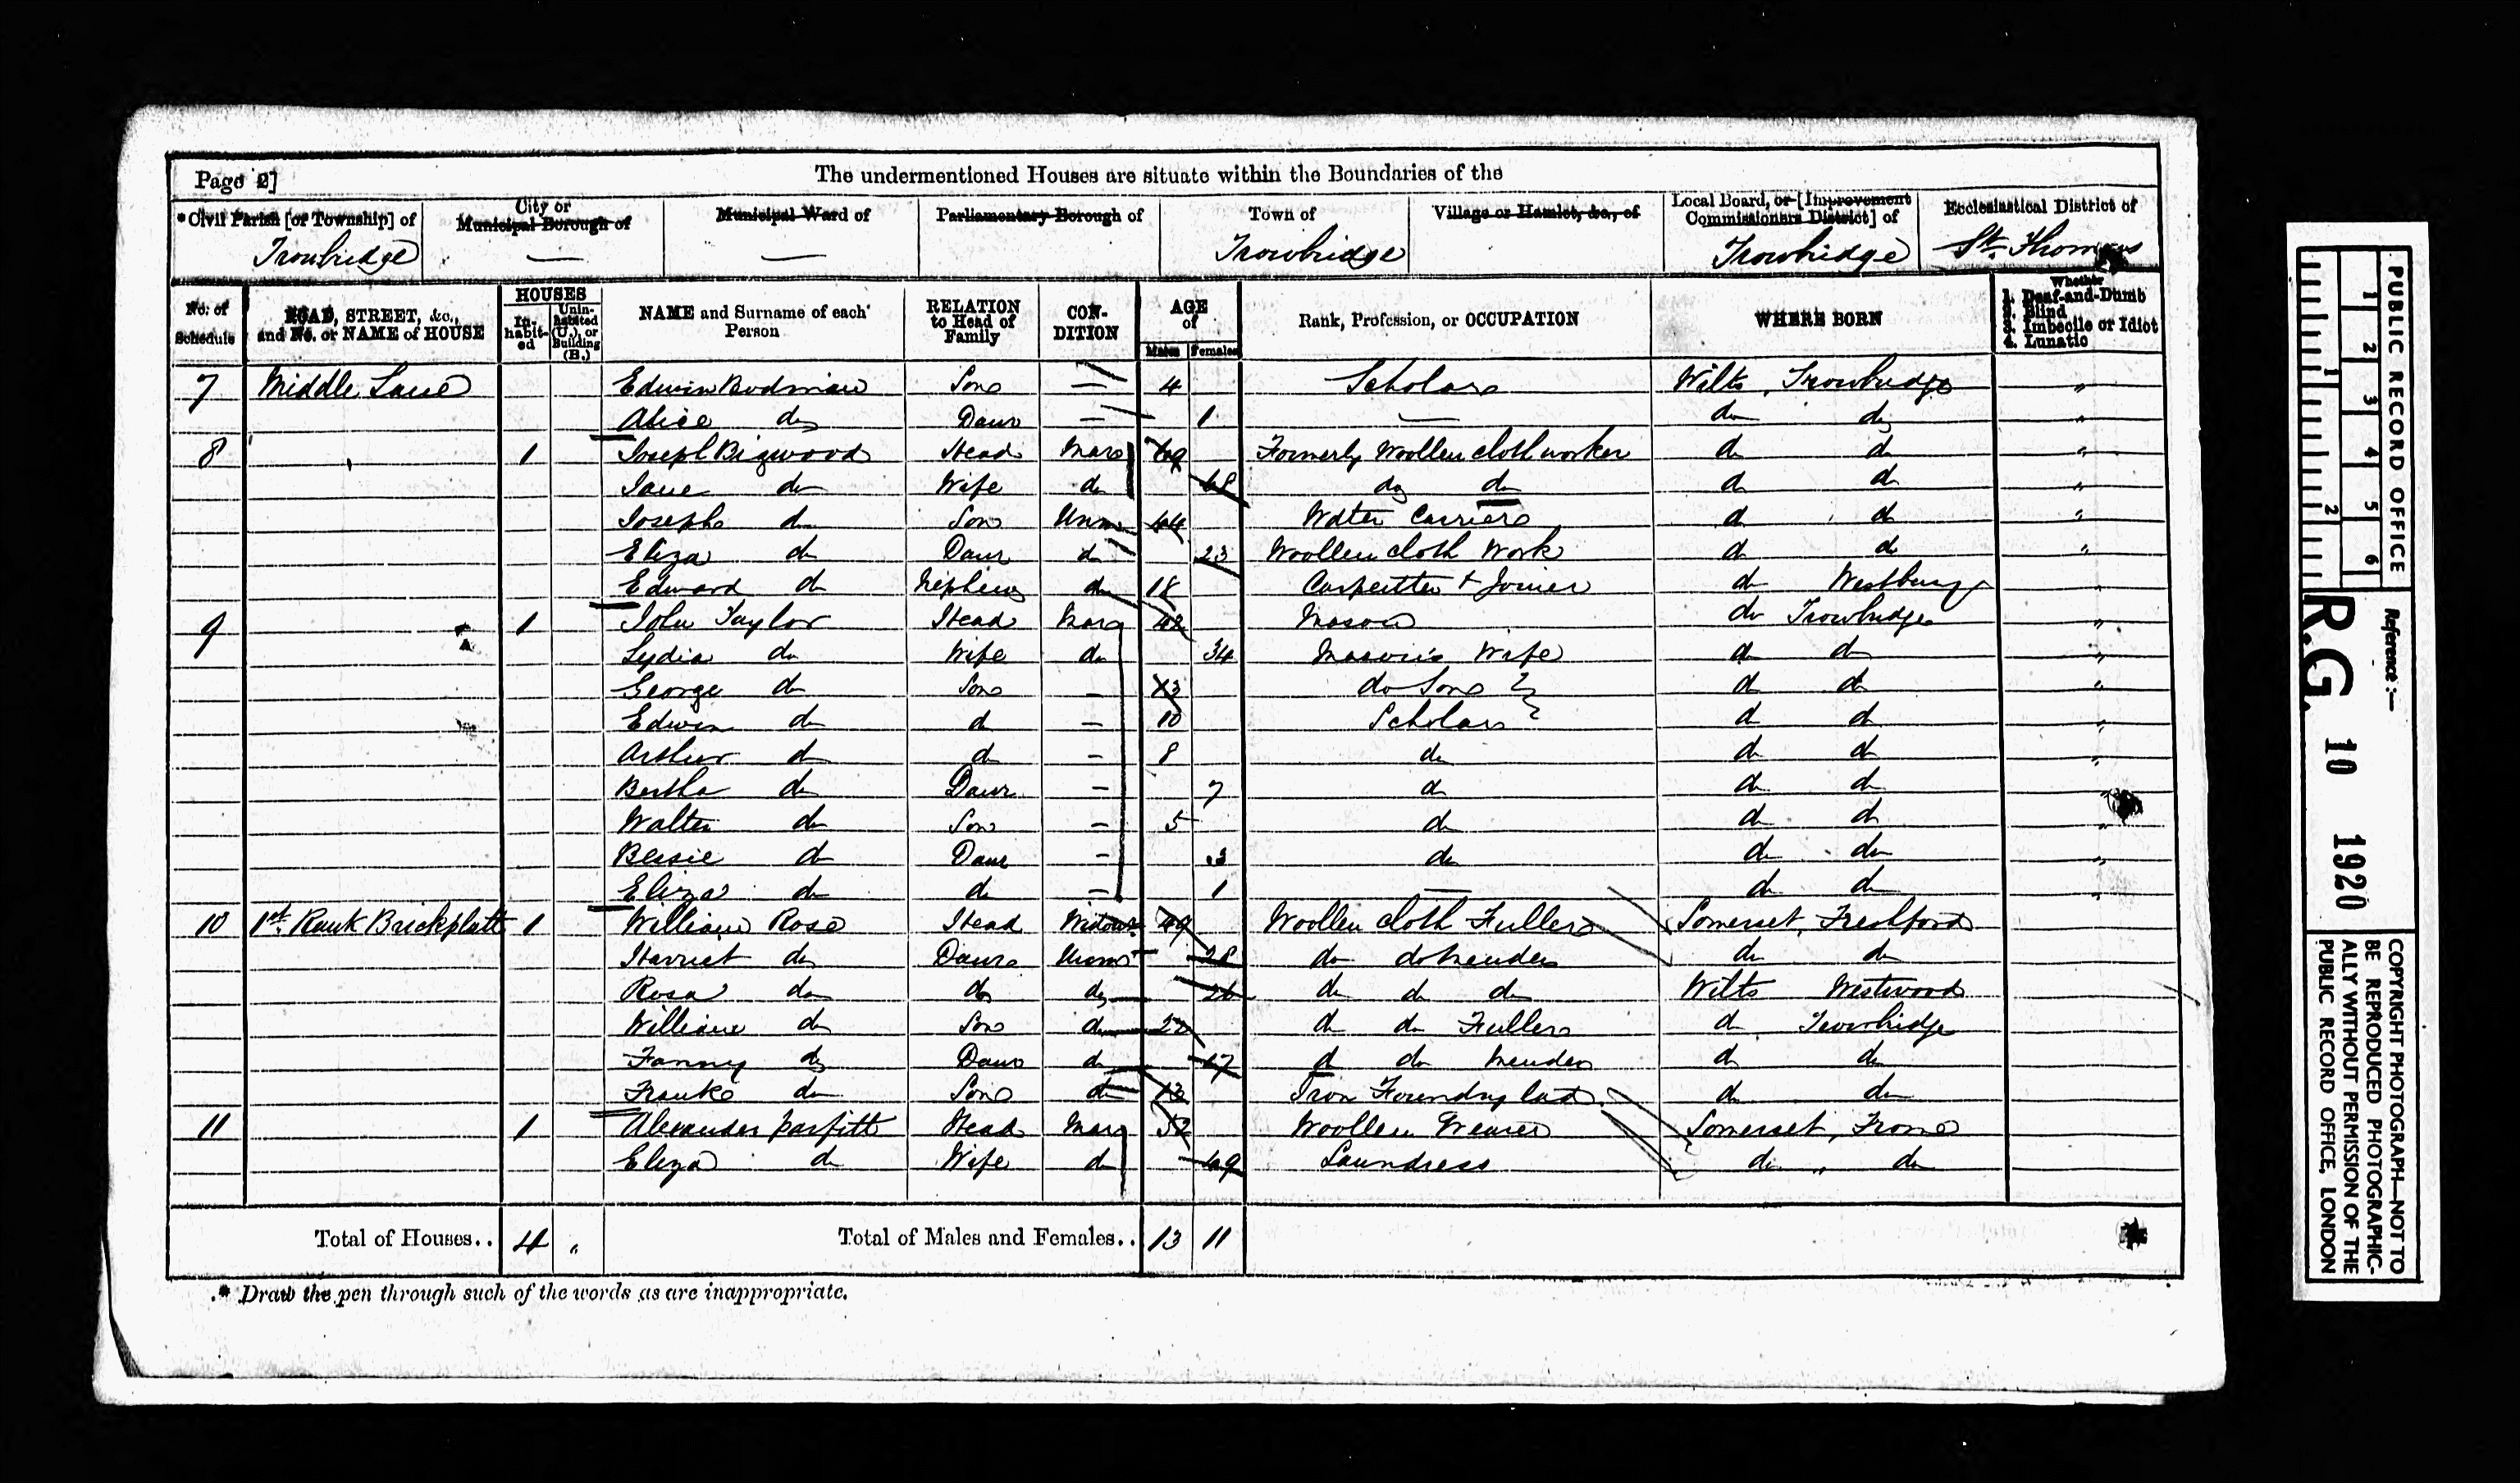 Page 2]
The undermentioned Houses are situate within the Boundaries of the
*Civil Parish [or Township] of
City or Municipal Borough of
Municipal Ward of
Parliamentary Borough of
Town of
Village or Hamlet, &c., of
Local Board, or [Improvement Commissioners District] of
Ecclesiastical District of
Trowbridge — — Trowbridge Trowbridge St. Thomas
No. of Schedule
ROAD, STREET, &c., and No. or NAME of HOUSE
HOUSES
In-habit-ed
Unin-habited (U.), or Building (B.)
NAME and Surname of each Person
RELATION to Head of Family
CON-DITION
AGE of
Males Females
Rank, Profession, or OCCUPATION
WHERE BORN
Whether
1. Deaf-and-Dumb
2. Blind
3. Imbecile or Idiot
4. Lunatic
7 Middle Lane Edwin Bodman Son — 4 Scholar Wilts, Trowbridge "
Alice do Daur — 1 — do do "
8 1 Joseph Bigwood Head Mar 69 Formerly Woollen cloth worker do do "
Jane do Wife do 68 do do do do "
Joseph do Son Unm 44 Water Carrier do do "
Eliza do Daur do 23 Woollen cloth Work do do "
Edward do Nephew do 18 Carpenter & Joiner do Westbury "
9 1 John Taylor Head Mar 42 Mason do Trowbridge "
Lydia do Wife do 34 Mason's Wife do do "
George do Son — 13 do Son do do "
Edwin do do — 10 Scholar do do "
Arthur do do — 8 do do do "
Bertha do Daur — 7 do do do "
Walter do Son — 5 do do do "
Bessie do Daur — 3 do do do "
Eliza do do — 1 — do do "
10 1st Rank Brickplatt 1 William Rose Head Widowr 49 Woollen Cloth Fuller Somerset, Freshford
Harriet do Daur Unm 28 do do mender do do
Rosa do do do 26 do do do Wilts Westwood
William do Son do 22 do do Fuller do Trowbridge
Fanny do Daur do 17 do do mender do do
Frank do Son do 13 Iron Foundry lad do do
11 1 Alexander Parfitt Head Mar 52 Woollen Weaver Somerset, Frome
Eliza do Wife do 49 Laundress do " do
Total of Houses.. 4 "
Total of Males and Females.. 13 11
* Draw the pen through such of the words as are inappropriate.
PUBLIC RECORD OFFICE
1 2 3 4 5 6
1 2
Reference :—
R.G. 10 1920
COPYRIGHT PHOTOGRAPH—NOT TO
BE REPRODUCED PHOTOGRAPHIC-
ALLY WITHOUT PERMISSION OF THE
PUBLIC RECORD OFFICE, LONDON